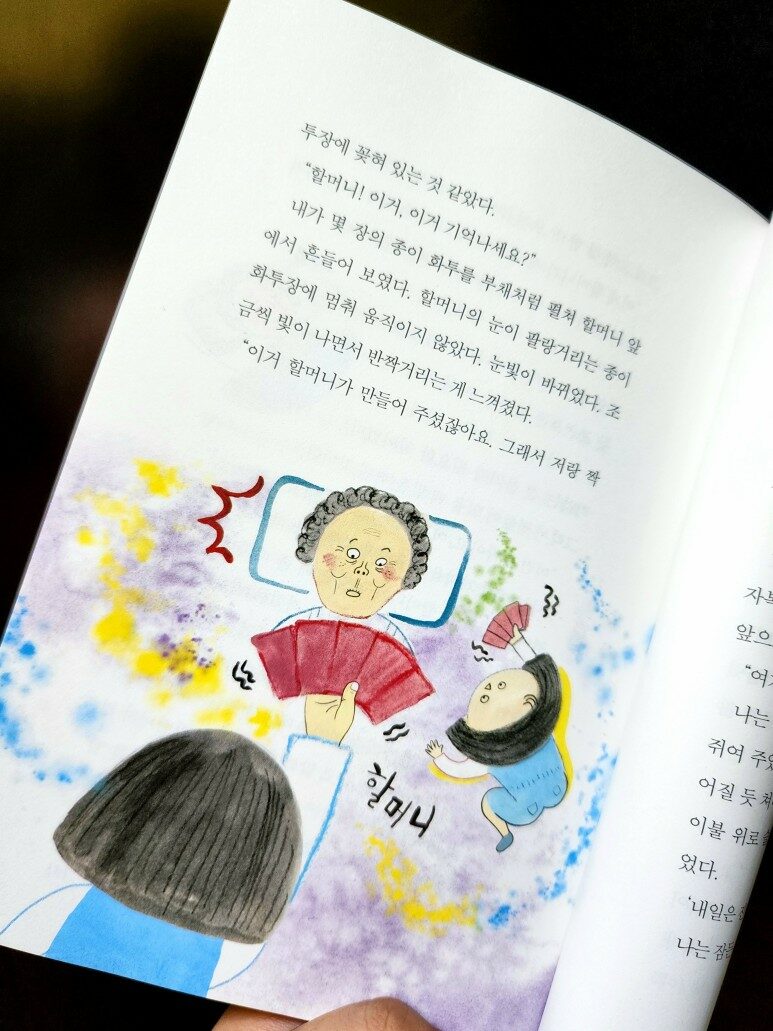 투장에 꽂혀 있는 것 같았다.
“할머니! 이거, 이거 기억나세요?”
내가 몇 장의 종이 화투를 부채처럼 펼쳐 할머니 앞
에서 흔들어 보였다. 할머니의 눈이 팔랑거리는 종이
화투장에 멈춰 움직이지 않았다. 눈빛이 바뀌었다. 조
금씩 빛이 나면서 반짝거리는 게 느껴졌다.
“이거 할머니가 만들어 주셨잖아요. 그래서 저랑 짝
할머니
앞으
나는
쥐여 주
어질 듯
이불 위로
었다.
‘내일은
나는